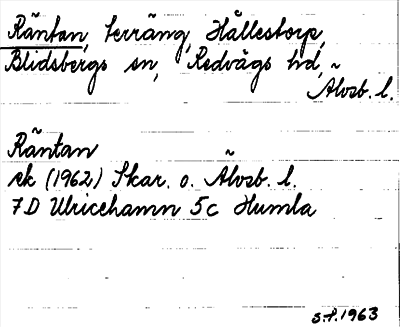 Räntan, terräng, Hållestorp,
Blidsbergs sn, Redvägs hd,
Älvsb. l.
Räntan
ek (1962) Skar. o. Älvsb. l.
7D Ulricehamn 5c Humla
S.f. 1963